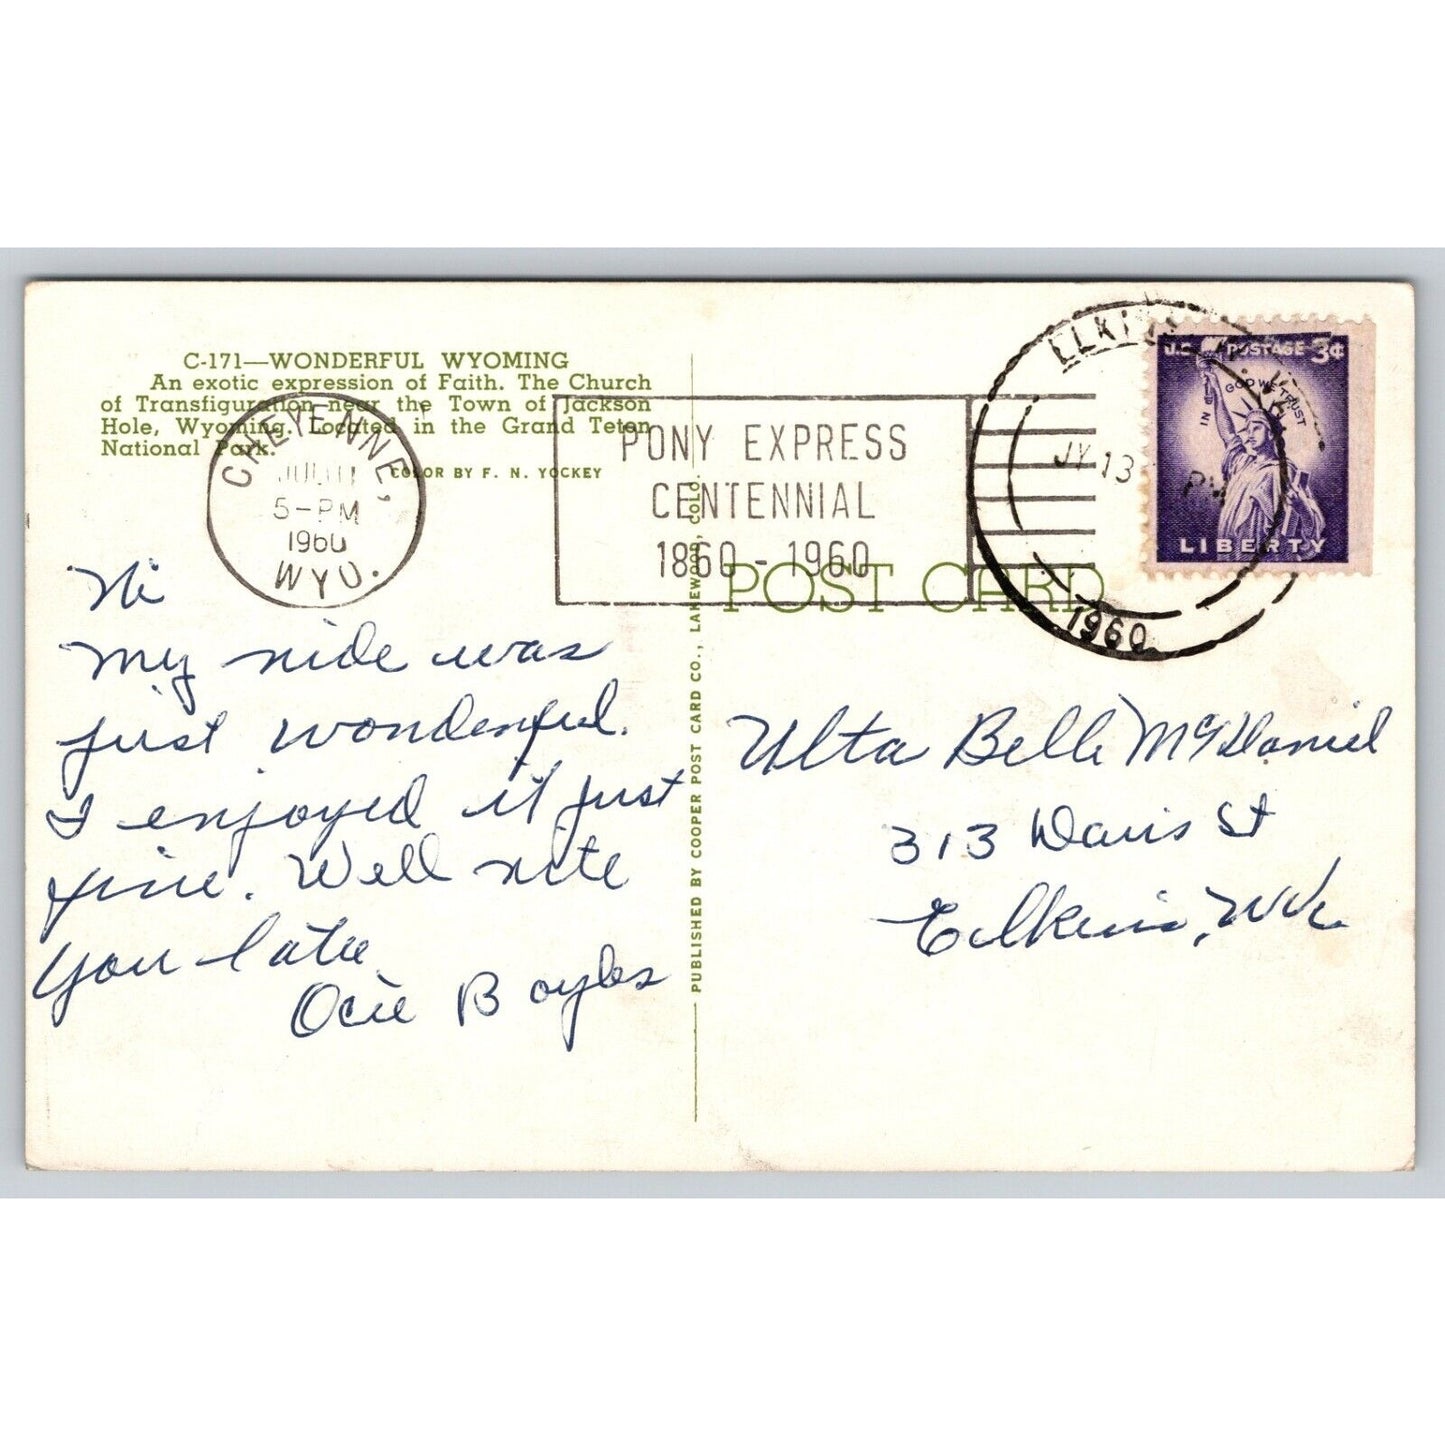 C-171—WONDERFUL WYOMING
An exotic expression of Faith. The Church
of Transfiguration near the Town of Jackson
Hole, Wyoming. Located in the Grand Teton
National Park.
COLOR BY F. N. YOCKEY
CHEYENNE,
JUL 11
5-PM
1960
WYO.
PONY EXPRESS
CENTENNIAL
1860-1960
Hi
My ride was
just wonderful.
I enjoyed it just
fine. Well write
you later
Ocie Boyles
PUBLISHED BY COOPER POST CARD CO., LAKEWOOD, COLO.
POST CARD
ELKINS
JY 13
PM
1960
U.S. POSTAGE 3¢
IN GOD WE TRUST
LIBERTY
Ulta Belle McDaniel
313 Davis St
Elkins, W.Va.